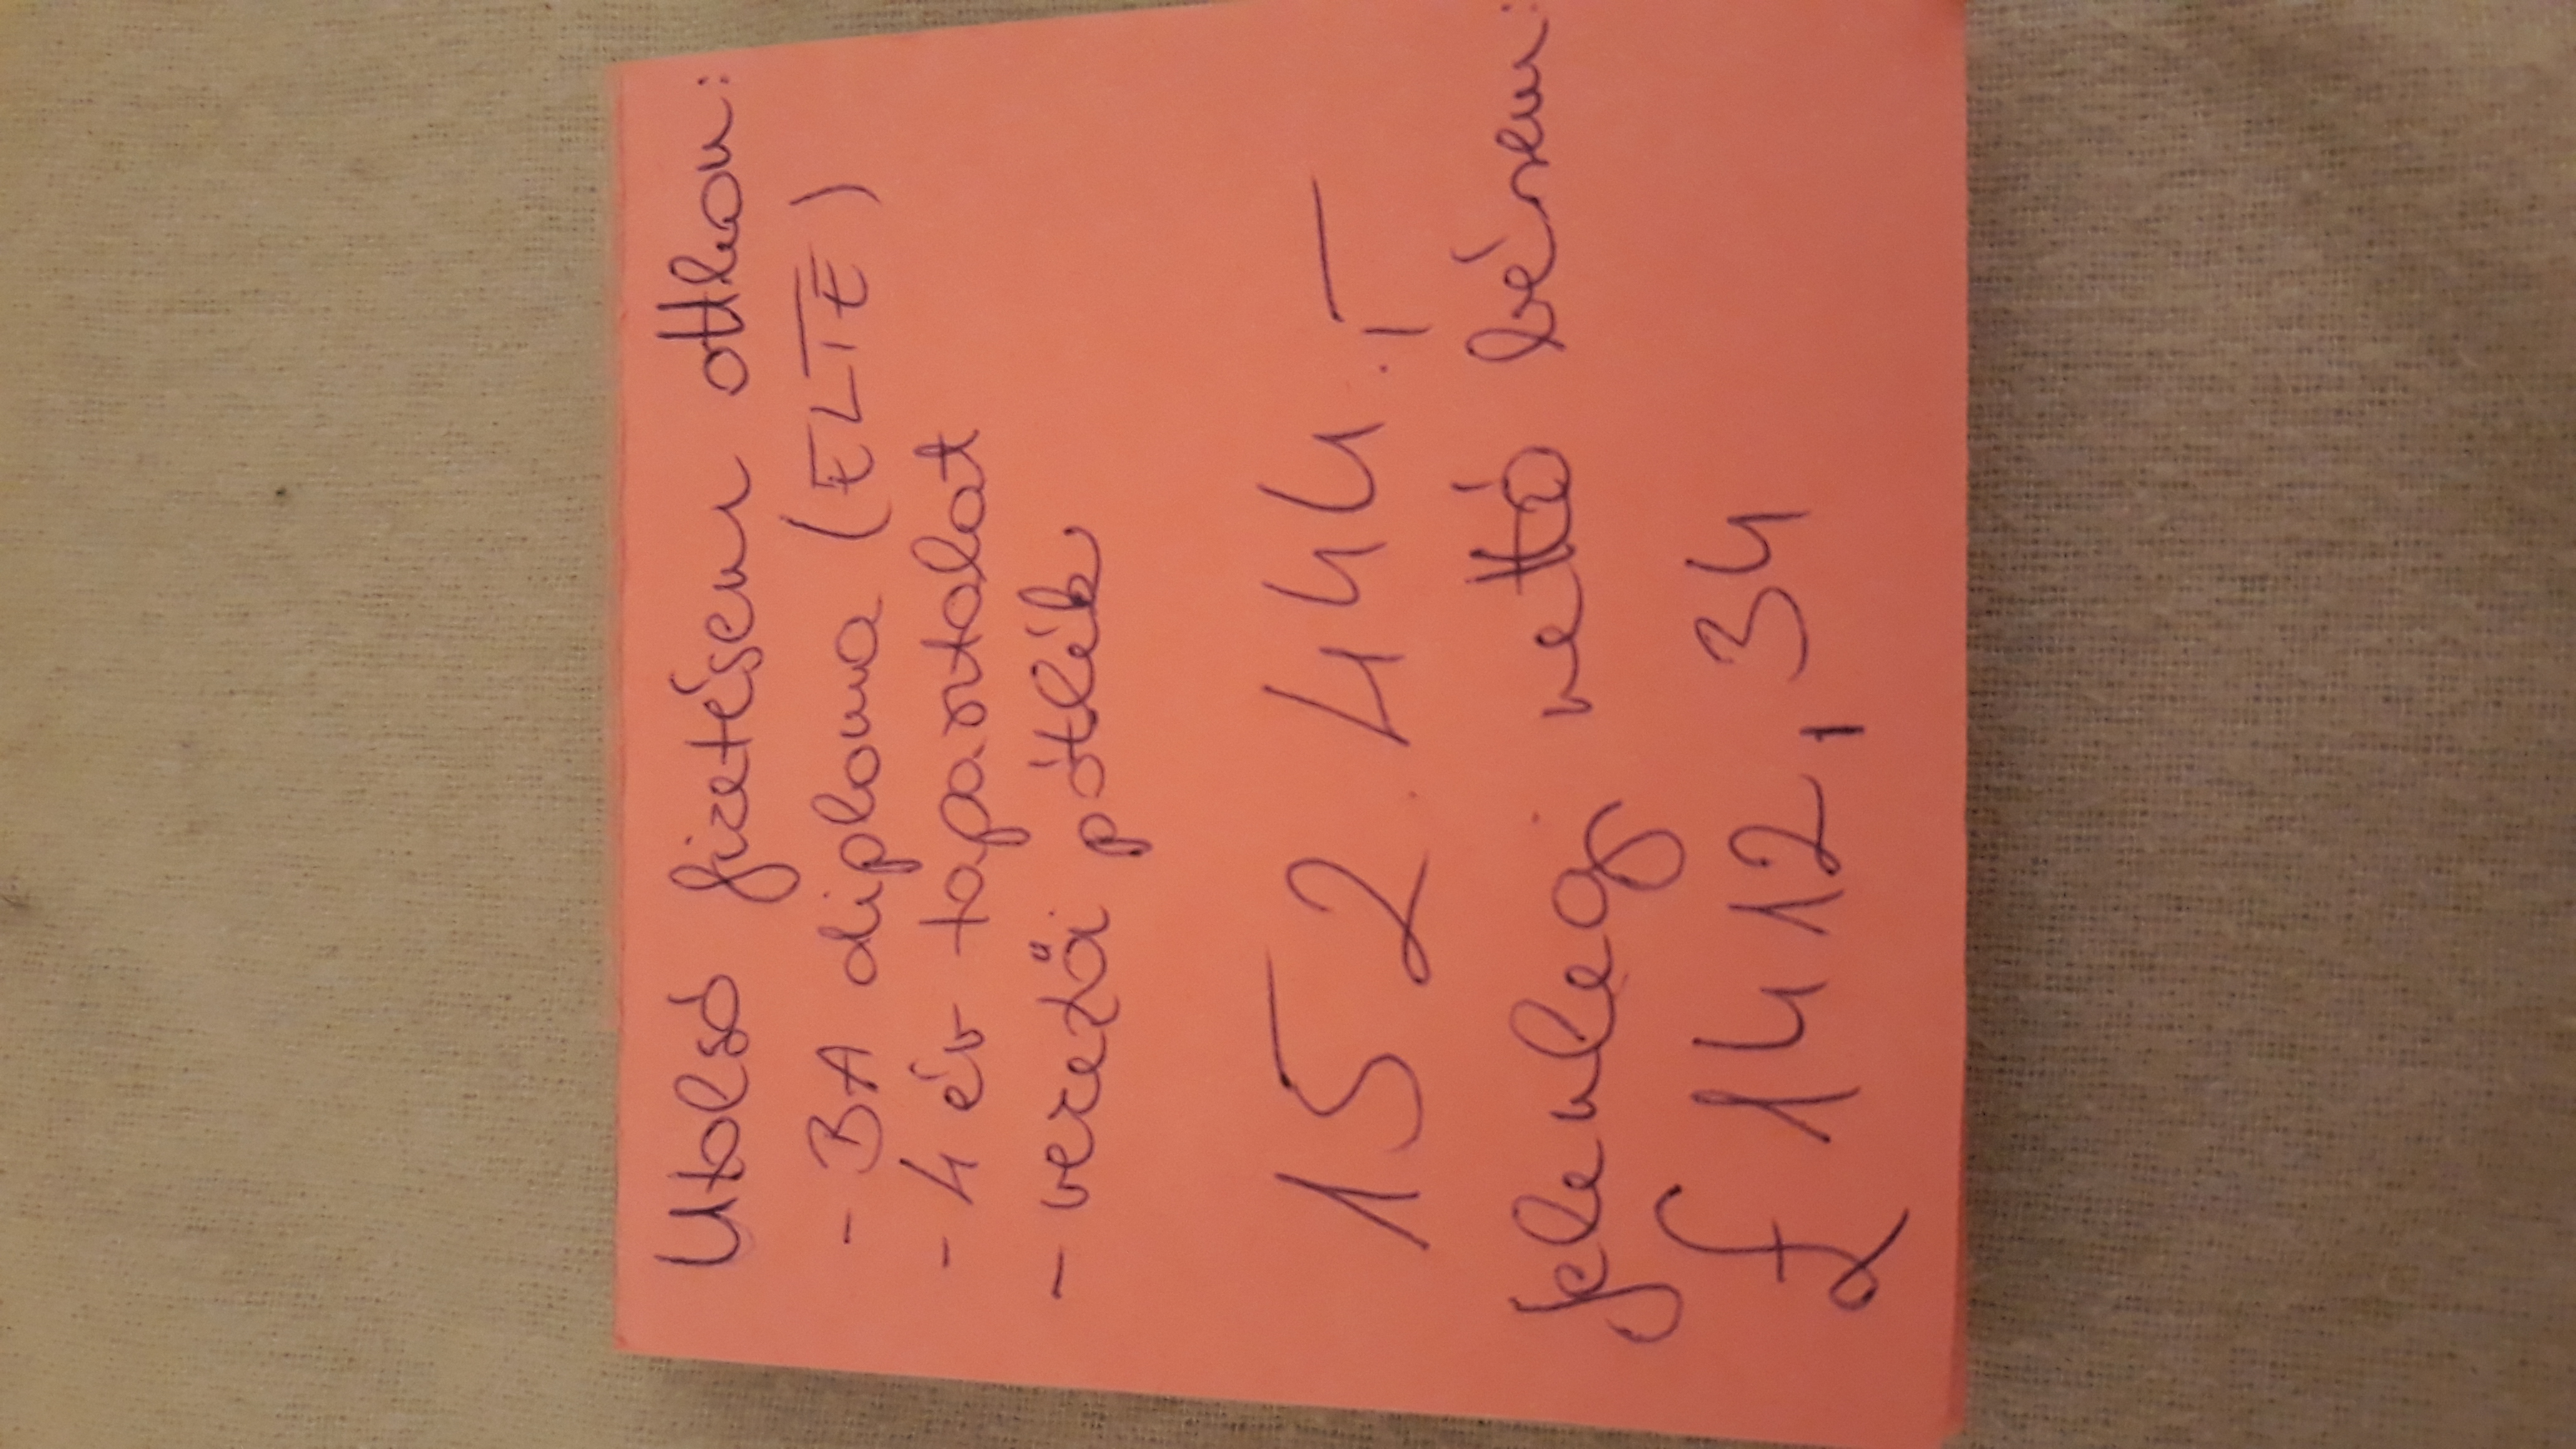 Utolsó fizetésem otthon:
- BA diploma (ELTE)
- 4 év tapasztalat
- vezetői pótlék
152.444.-
jelenleg nettó bérem:
£ 1412,34